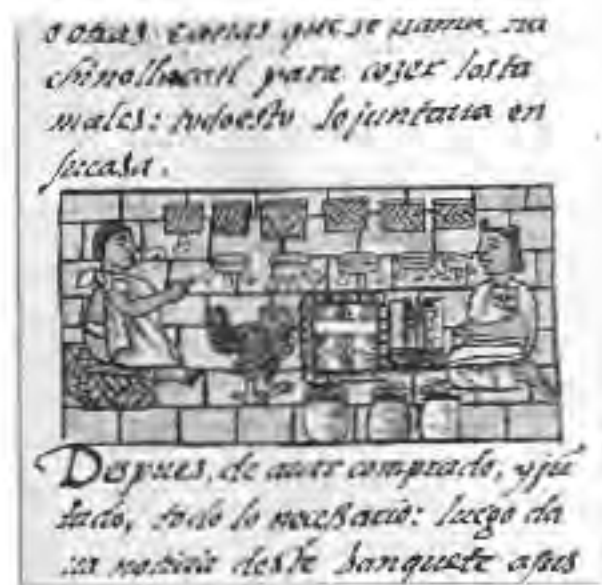 o otras cosas que se llama, na
para cozer los ta
males: todo esto lo juntaua en
su casa.
Despues, de auer comprado, y jū
tado, todo lo necessario: luego da
ua noticia deste banquete a sus